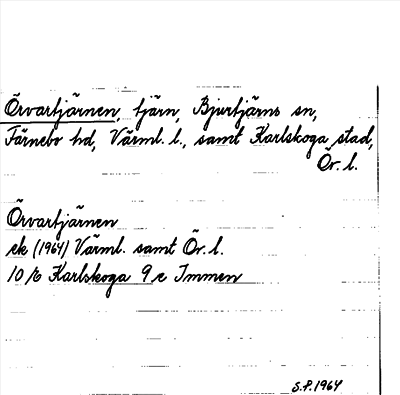 Örvartjärnen, tjärn, Bjurtjärns sn,
Färnebo hd, Värml. l., samt Karlskoga stad,
Ör. l.
Örvartjärnen
ek (1964) Värml. samt Ör. l.
10 E Karlskoga 9 c Immen
S.P. 1964